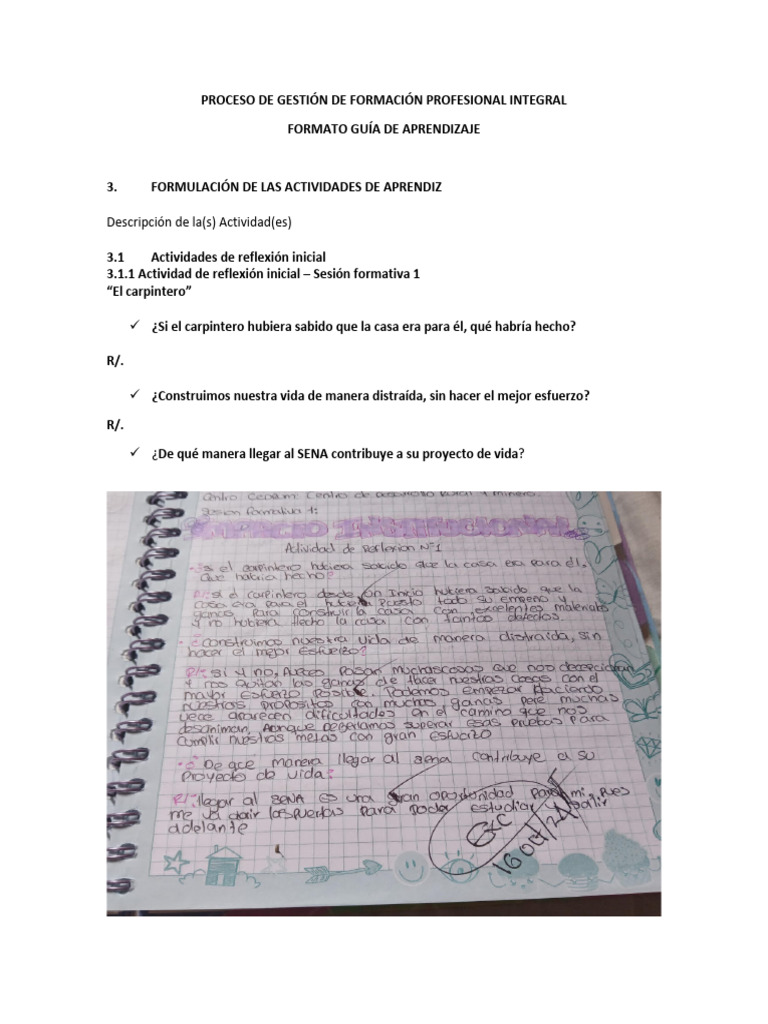 PROCESO DE GESTIÓN DE FORMACIÓN PROFESIONAL INTEGRAL
FORMATO GUÍA DE APRENDIZAJE
3. FORMULACIÓN DE LAS ACTIVIDADES DE APRENDIZ
Descripción de la(s) Actividad(es)
3.1 Actividades de reflexión inicial
3.1.1 Actividad de reflexión inicial – Sesión formativa 1
“El carpintero”
✓ ¿Si el carpintero hubiera sabido que la casa era para él, qué habría hecho?
R/.
✓ ¿Construimos nuestra vida de manera distraída, sin hacer el mejor esfuerzo?
R/.
✓ ¿De qué manera llegar al SENA contribuye a su proyecto de vida?
Centro: Cedrum: Centro de desarrollo rural y minero
Sesion formativa 1:
Actividad de Reflexion N°1
¿Si el carpintero hubiera sabido que la casa era para él,
que habria hecho?
R/: si el carpintero desde un Inicio hubiera sabido que la
casa era para el hubiera puesto todo su empeño y
ganas para construir la casa con excelentes materiales
y no hubiera hecho la casa con tantos defectos.
¿construimos nuestra vida de manera distraida, sin
hacer el mejor esfuerzo?
R/: si y no, Aveces pasan muchascosas que nos decepcionan
y nos quitan las ganas de hacer nuestras cosas con el
mayor esfuerzo posible. Podemos empezar haciendo
nuestros propositos con muchas ganas pero muchas
vece aparecen dificultades en el camino que nos
desaniman, Aunque deberiamos superar esas pruebas para
cumplir nuestras metas con gran esfuerzo
¿De que manera llegar al sena contribuye a su
proyecto de vida?
R/: llegar al SENA es una gran oportunidad para mi, pues
me va abrir las puertas para poder estudiar y salir
adelante
Exc
16 oct/24